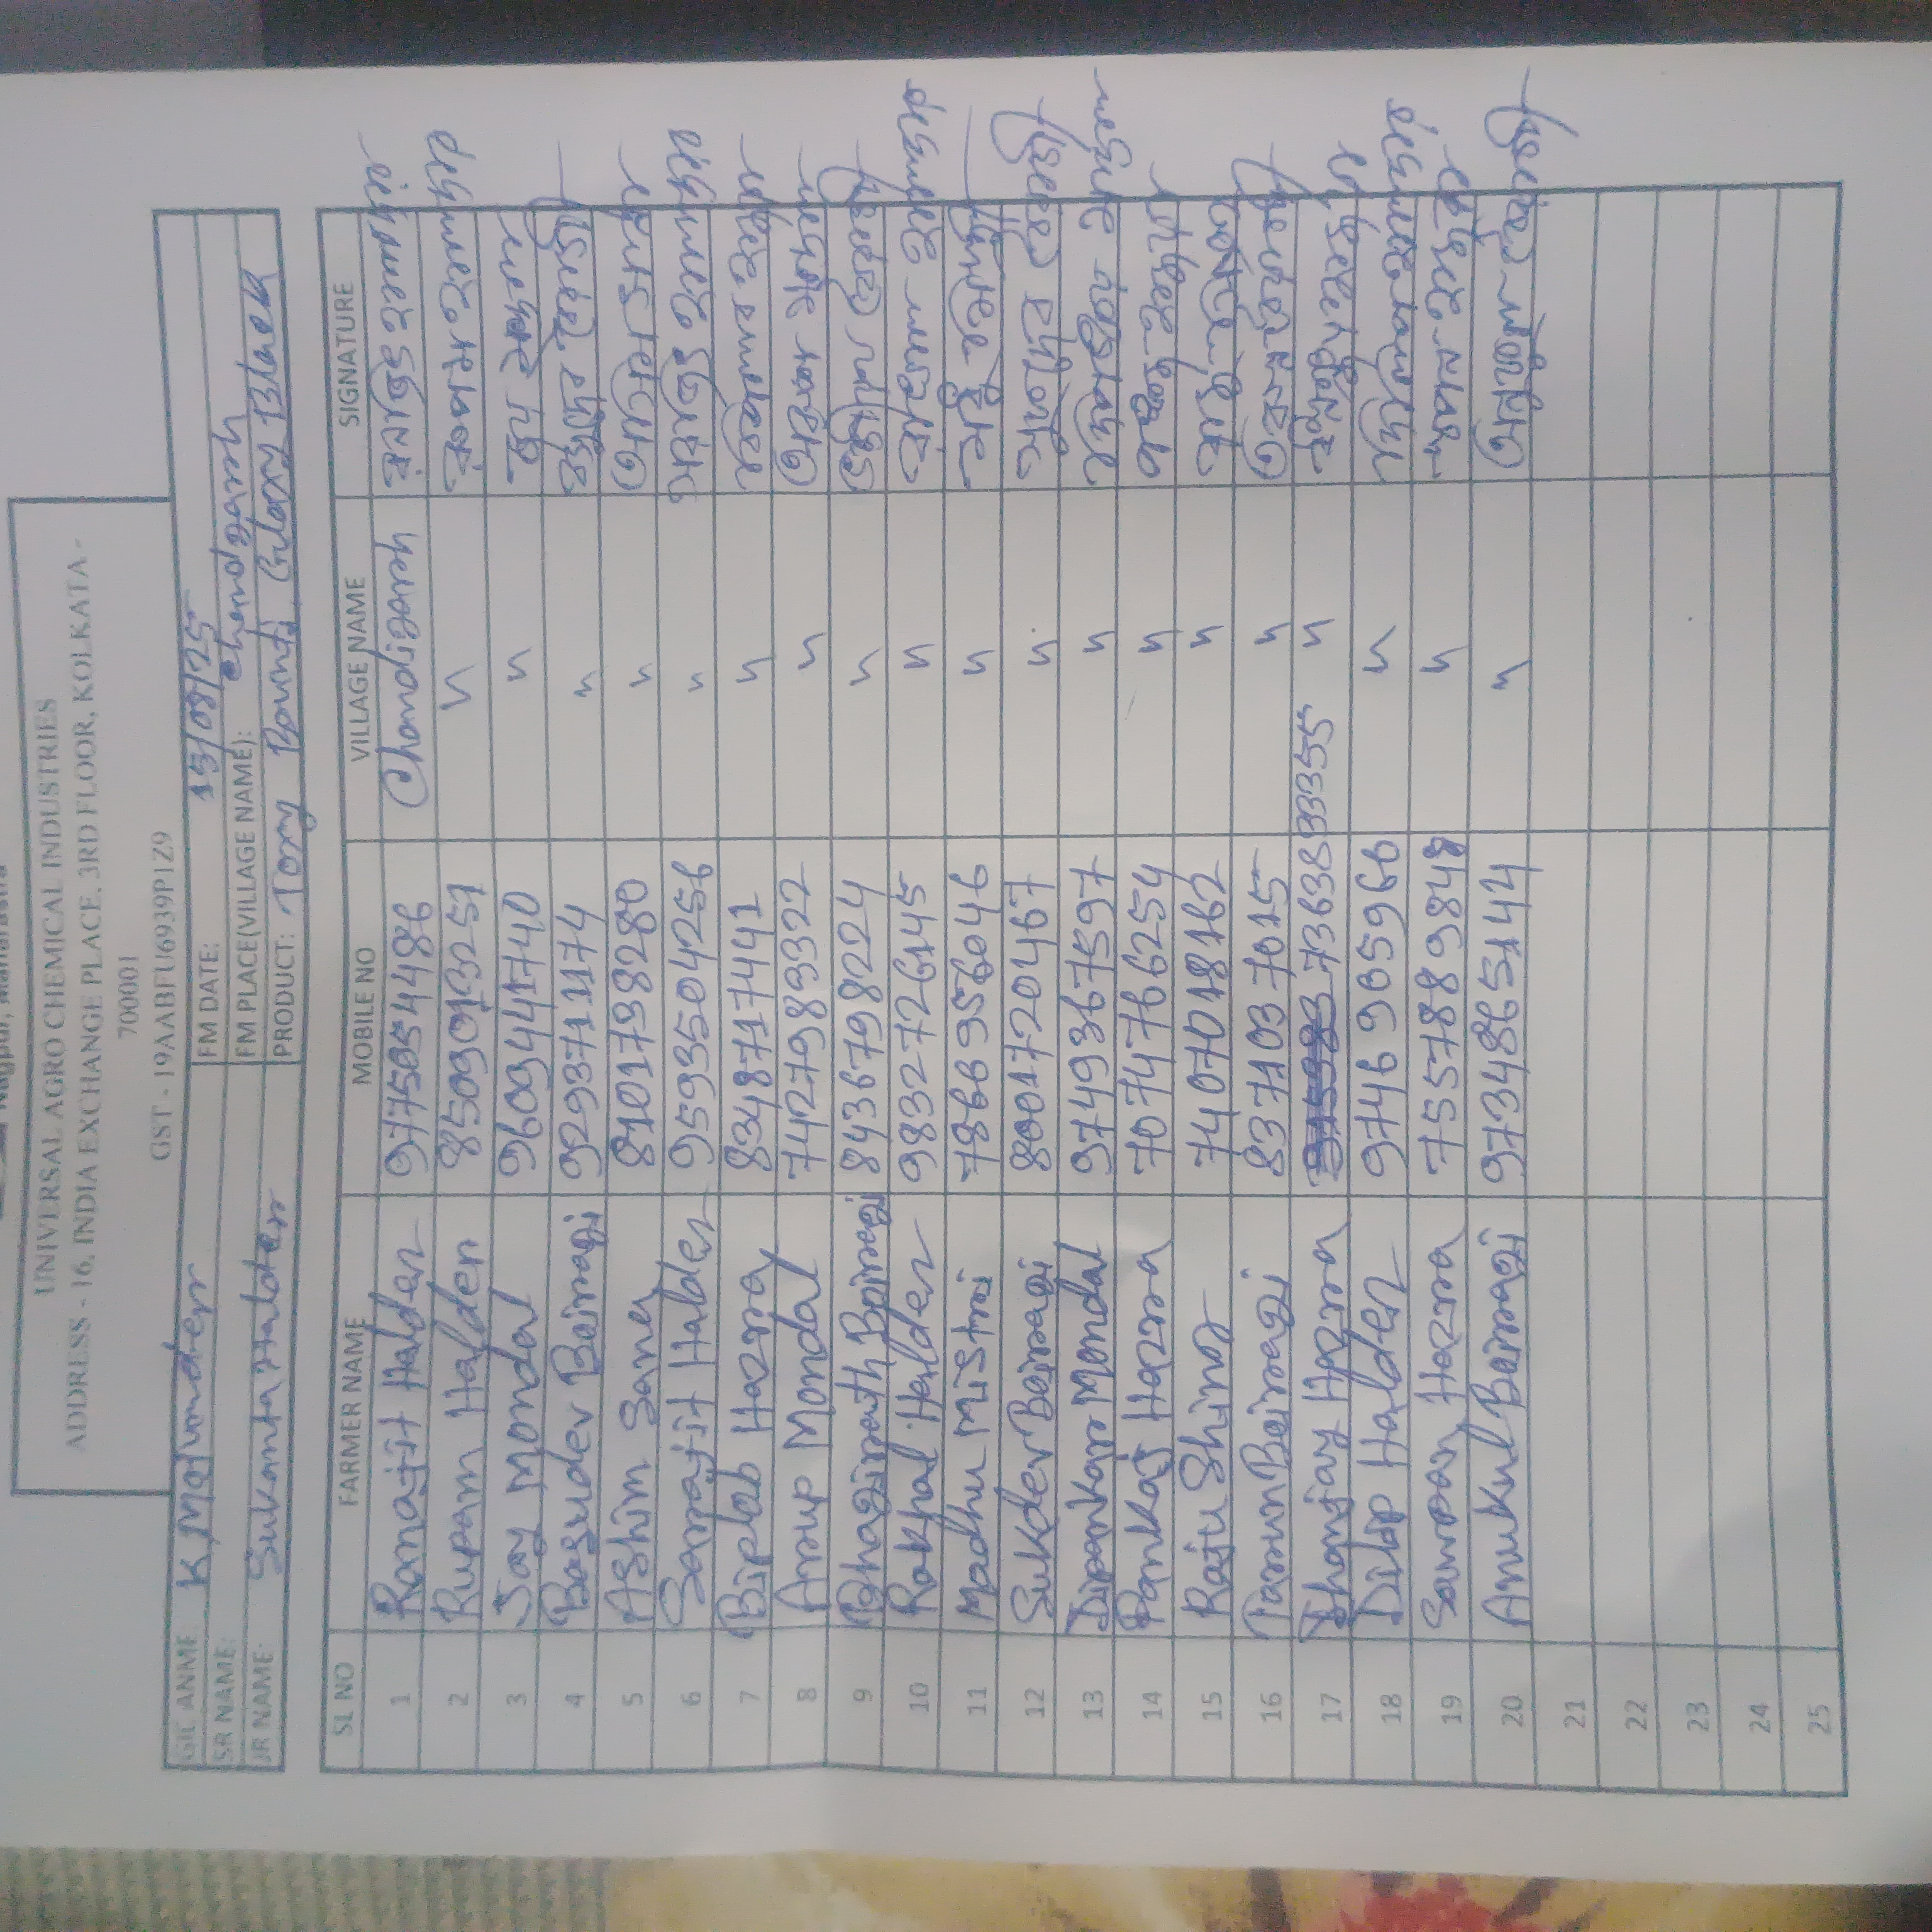 Nagpur, Maharastra
UNIVERSAL AGRO CHEMICAL INDUSTRIES
ADDRESS - 16, INDIA EXCHANGE PLACE, 3RD FLOOR, KOLKATA -
700001
GST - 19AABFU6939P1Z9
GET ANME: K, Majumder FM DATE: 15/09/25
SR NAME: FM PLACE(VILLAGE NAME): Chandigarh
JR NAME: Sukanta Halder PRODUCT: Tony Bounti, Glory Black
SL NO FARMER NAME MOBILE NO VILLAGE NAME SIGNATURE
1 Ranajit Halder 9775054486 Chandigarh রনজিৎ হালদার
2 Rupam Halder 8509013251 " রুপম হালদার
3 Joy Mondal 9609441740 " জয় মন্ডল
4 Basudev Bairagi 9293711174 " বাসুদেব বৈরাগী
5 Ashim Sana 8101798280 "
6 Sanajit Halder 9593504256 " হালদার
7 Biplab Hazra 8348717441 " বিপ্লব হাজরা
8 Arup Mondal 7427983322 " মন্ডল
9 Bhagirath Bairagi 8436798224 " বৈরাগী
10 Rakhal Halder 9832726145 " রাখাল হালদার
11 Madhu Mistri 7866956046 " মধু মিস্ত্রী
12 Sukdev Bairagi 8001720467 " সুকদেব বৈরাগী
13 Dipankar Mondal 9749367597 " দীপঙ্কর মন্ডল
14 Pankaj Hazra 7074766254 " পঙ্কজ হাজরা
15 Raju Shing 7407018162 " রাজু সিং
16 Tarun Bairagi 8371037015 " বৈরাগী
17 Dhanjay Hazra 7363833355 " হাজরা
18 Dilip Halder 9746905966 " দিলীপ হালদার
19 Sawpan Hazra 7557889848 " স্বপন হাজরা
20 Anukul Bairagi 9734865144 " অনুকূল বৈরাগী
21
22
23
24
25